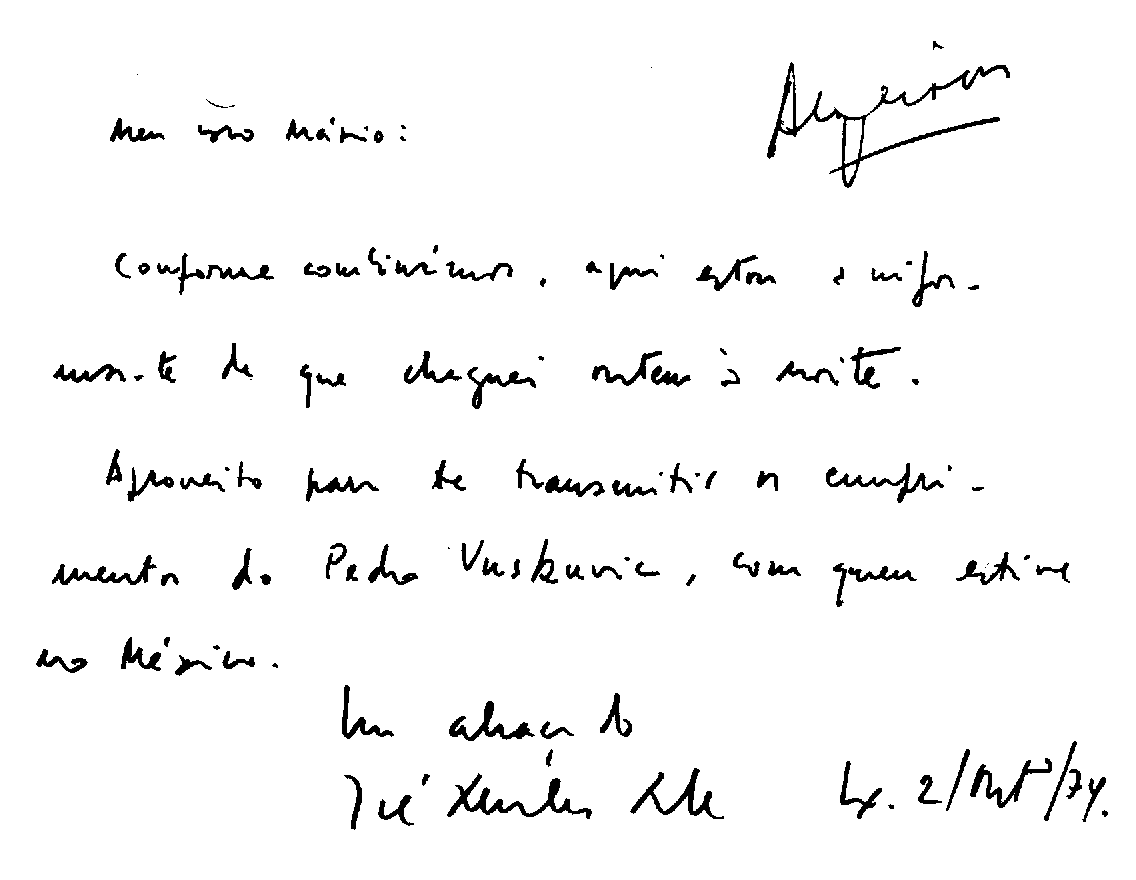 Arqueiros
Meu caro Mário:
Conforme combinámos, aqui estou a infor-
mar-te de que cheguei ontem à noite.
Aproveito para te transmitir os cumpri-
mentos do Pedro Vuskovic, com quem estive
no México.
Um abraço do
José
Lx. 2/Outº/74.